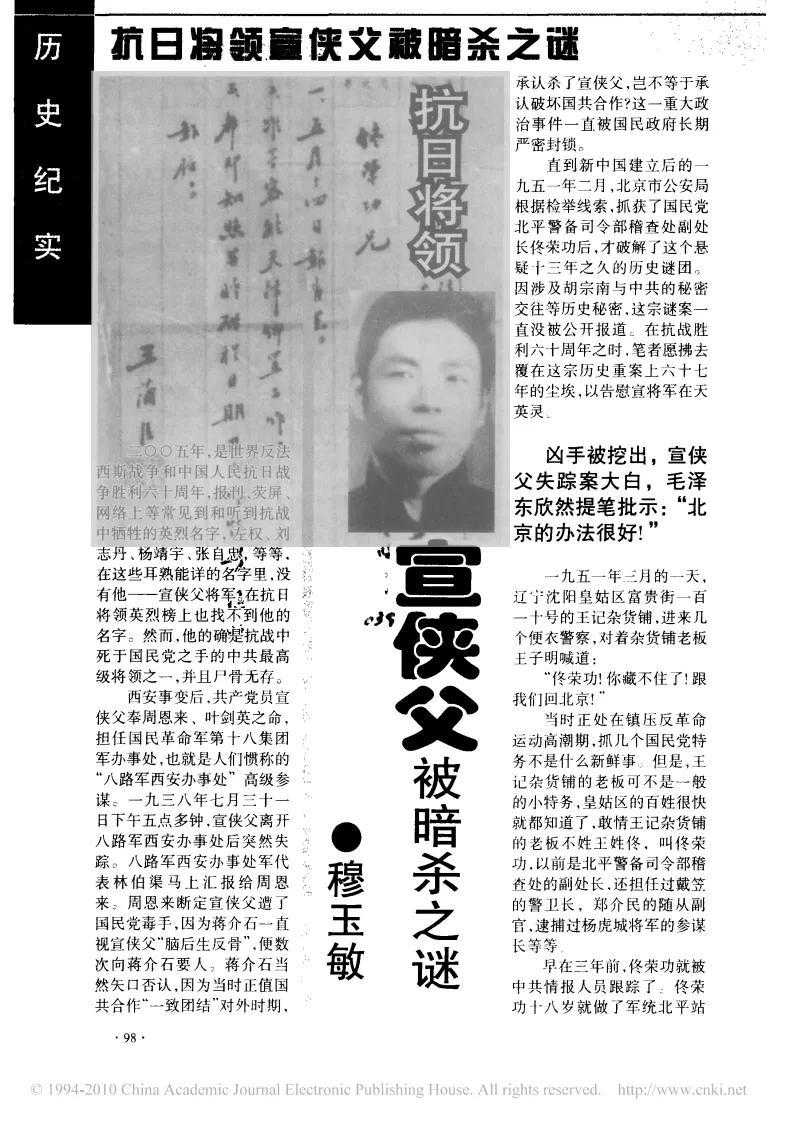 历史纪实
抗日将领宣侠父被暗杀之谜
抗日将领
宣侠父
被暗杀之谜
●穆玉敏
二〇〇五年,是世界反法
西斯战争和中国人民抗日战
争胜利六十周年,报刊、荧屏、
网络上等常见到和听到抗战
中牺牲的英烈名字,左权、刘
志丹、杨靖宇、张自忠,等等,
在这些耳熟能详的名字里,没
有他——宣侠父将军,在抗日
将领英烈榜上也找不到他的
名字。然而,他的确是抗战中
死于国民党之手的中共最高
级将领之一,并且尸骨无存。
西安事变后,共产党员宣
侠父奉周恩来、叶剑英之命,
担任国民革命军第十八集团
军办事处,也就是人们惯称的
“八路军西安办事处”高级参
谋。一九三八年七月三十一
日下午五点多钟,宣侠父离开
八路军西安办事处后突然失
踪。八路军西安办事处军代
表林伯渠马上汇报给周恩
来。周恩来断定宣侠父遭了
国民党毒手,因为蒋介石一直
视宣侠父“脑后生反骨”,便数
次向蒋介石要人。蒋介石当
然矢口否认,因为当时正值国
共合作“一致团结”对外时期,
承认杀了宣侠父,岂不等于承
认破坏国共合作?这一重大政
治事件一直被国民政府长期
严密封锁。
直到新中国建立后的一
九五一年二月,北京市公安局
根据检举线索,抓获了国民党
北平警备司令部稽查处副处
长佟荣功后,才破解了这个悬
疑十三年之久的历史谜团。
因涉及胡宗南与中共的秘密
交往等历史秘密,这宗谜案一
直没被公开报道。在抗战胜
利六十周年之时,笔者愿拂去
覆在这宗历史重案上六十七
年的尘埃,以告慰宣将军在天
英灵。
凶手被挖出,宣侠
父失踪案大白,毛泽
东欣然提笔批示:“北
京的办法很好!”
一九五一年三月的一天,
辽宁沈阳皇姑区富贵街一百
一十号的王记杂货铺,进来几
个便衣警察,对着杂货铺老板
王子明喊道:
“佟荣功!你藏不住了!跟
我们回北京!”
当时正处在镇压反革命
运动高潮期,抓几个国民党特
务不是什么新鲜事。但是,王
记杂货铺的老板可不是一般
的小特务,皇姑区的百姓很快
就都知道了,敢情王记杂货铺
的老板不姓王姓佟,叫佟荣
功,以前是北平警备司令部稽
查处的副处长,还担任过戴笠
的警卫长,郑介民的随从副
官,逮捕过杨虎城将军的参谋
长等等。
早在三年前,佟荣功就被
中共情报人员跟踪了。佟荣
功十八岁就做了军统北平站
·98·
© 1994-2010 China Academic Journal Electronic Publishing House. All rights reserved. http://www.cnki.net